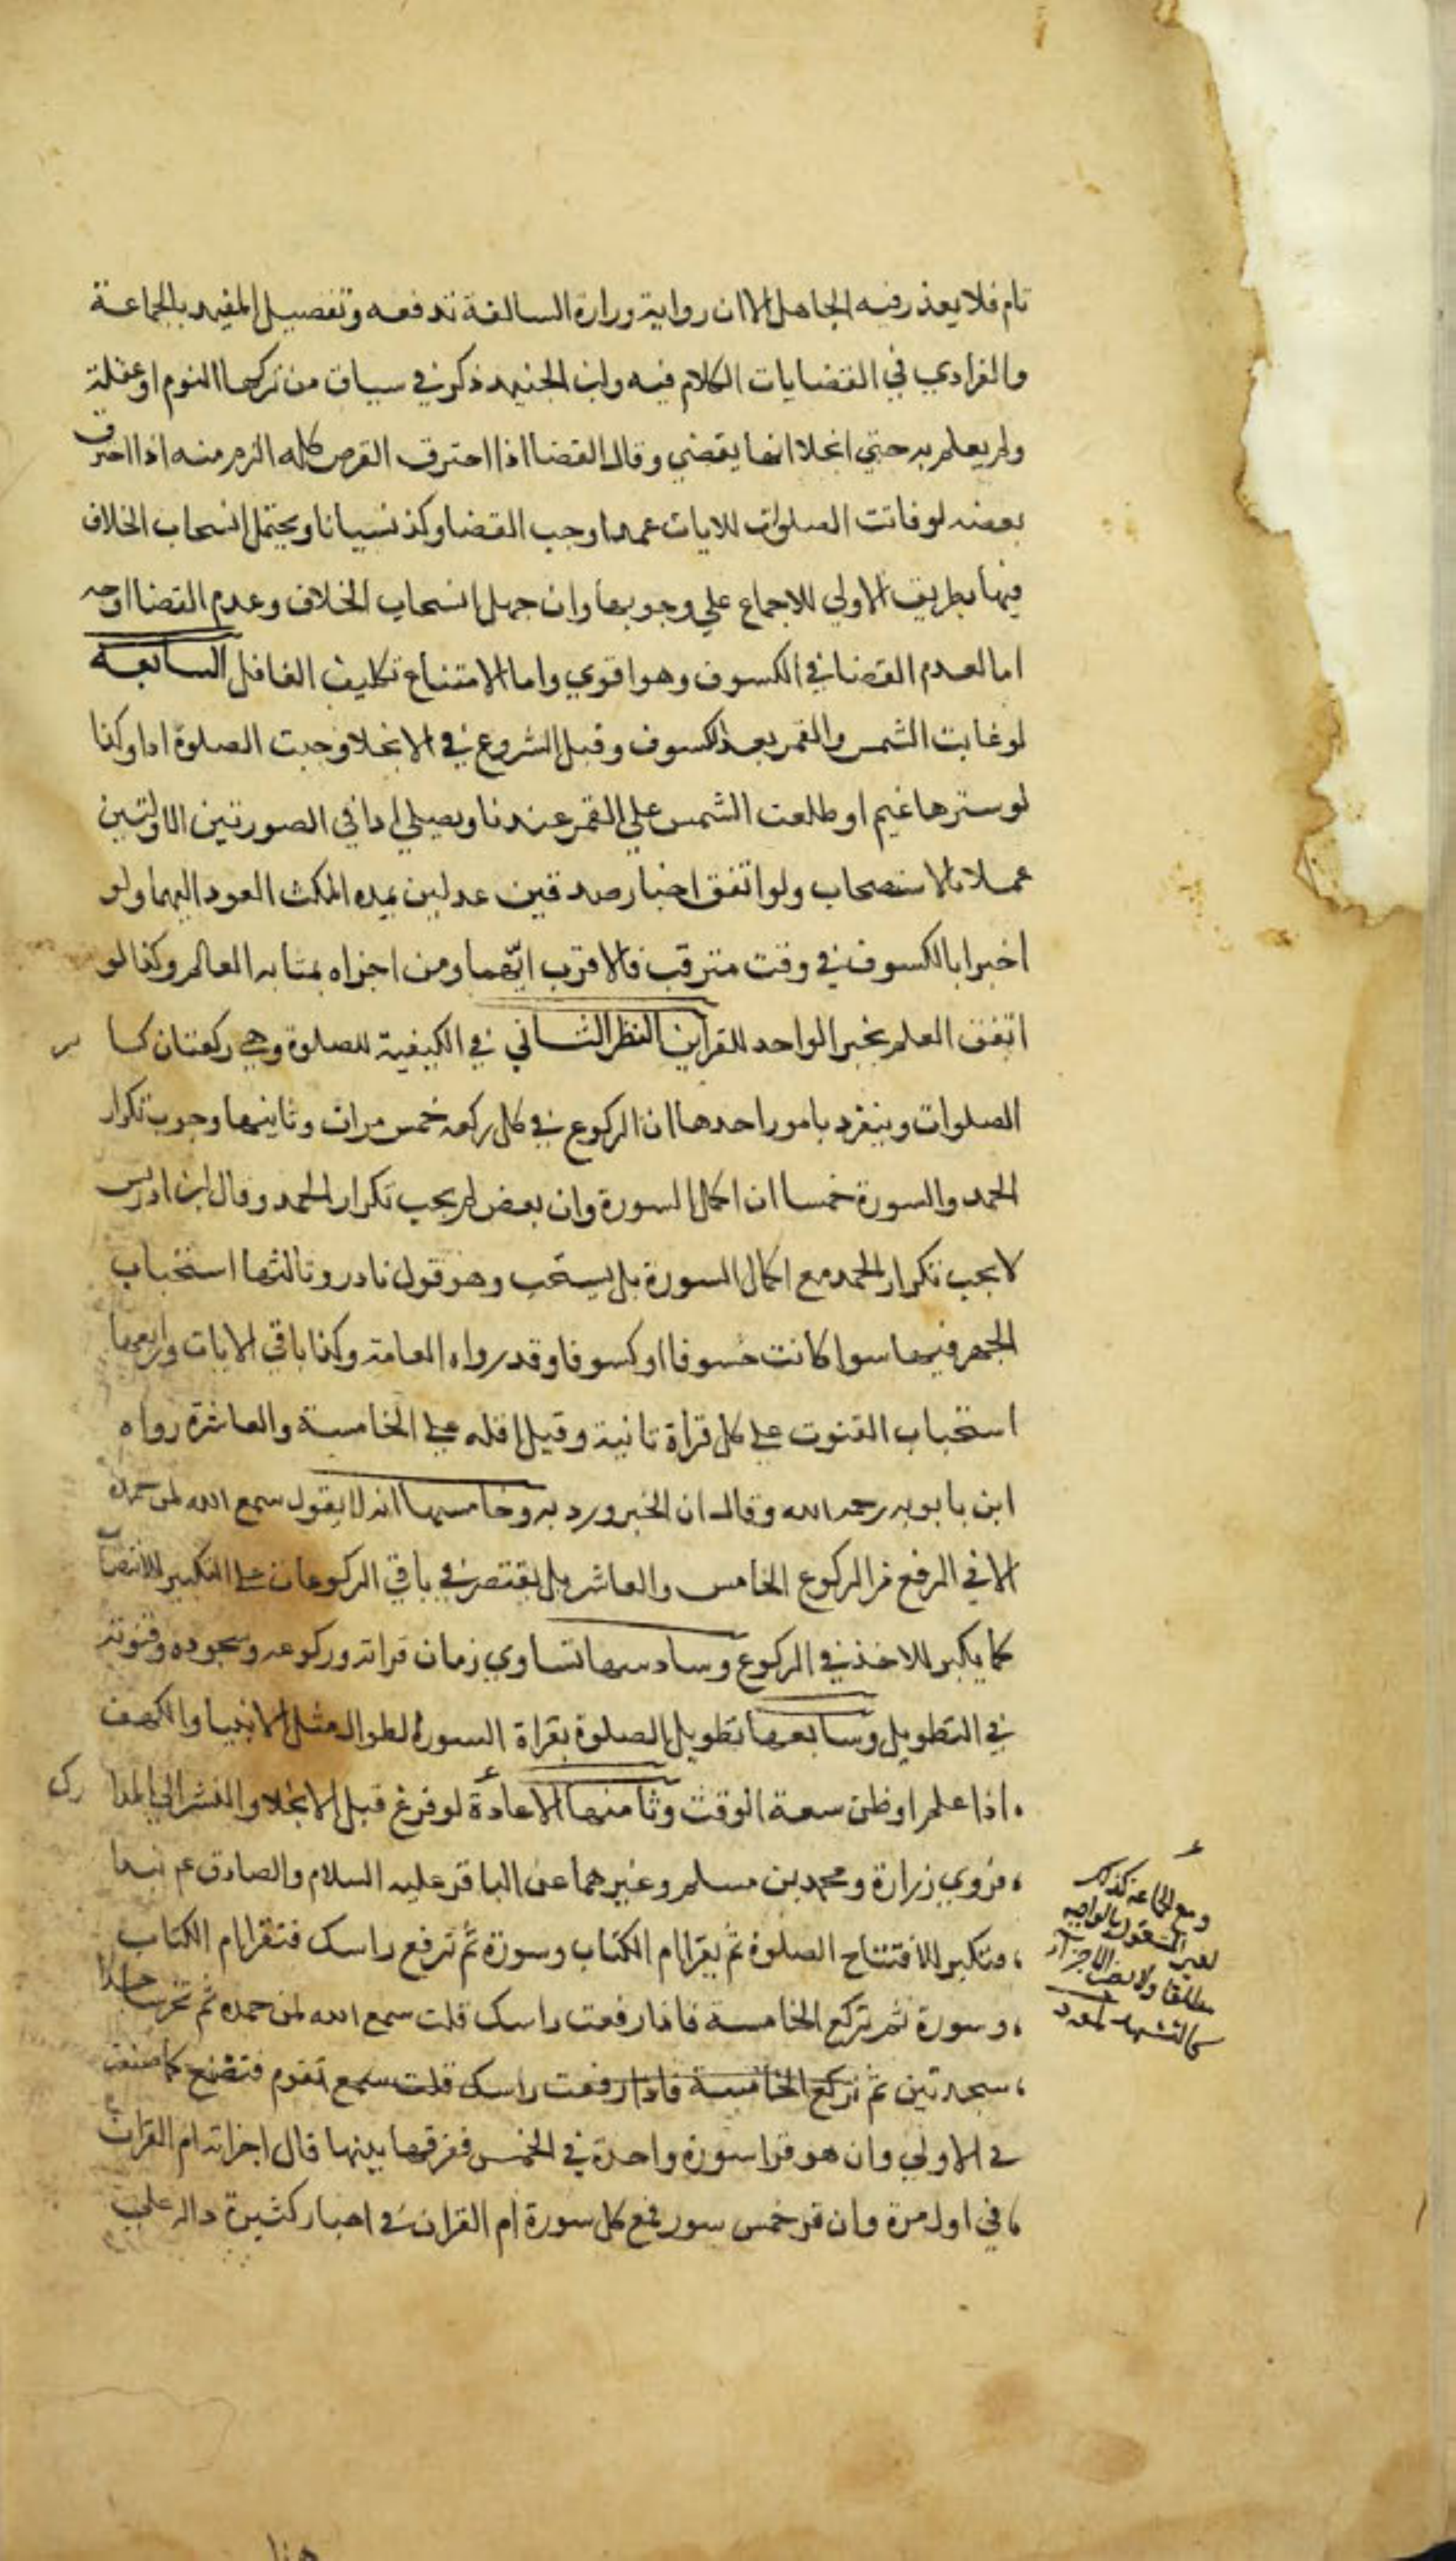 تام فلا يعذر فيه الجاهل الا ان رواية زرارة السالفة تدفعه وتفصيل المفيد بالجماعة
والفرادي في القضا يات الكلام فيه وابن الجنيد ذكر في سياق من تركها النوم او غفلة
ولم يعلم به حتي انجلا انها يقضي وقال القضا اذا احترق القرص كله الزم منه اذا احترق
بعضه لو فاتت الصلوات للايات عمدا وجب القضا وكذ نسيانا ويحتمل انسحاب الخلاف
فيها بطريق الاولي للاجماع علي وجوبها وان جهل انسحاب الخلاف وعدم القضا اوجه
اما لعدم القضا في الكسوف وهو اقوي واما لامتناع تكليف الغافل السابعة
لو غابت الشمس والقمر بعد الكسوف وقبل الشروع في الانجلا وجبت الصلوة ادا وكذا
لو سترها غيم او طلعت الشمس علي القمر عندنا ويصلي ادا في الصورتين الاولتين
عملا بالاستصحاب ولو اتفق اخبار صدقين عدلين بمدة المكث العود اليهما ولو
اخبرا بالكسوف في وقت مترقب فالاقرب انهما ومن اجزاه بمثابه العالم وكذا لو
اتفق العلم بخبر الواحد للقراين النظر الثاني في الكيفية للصلوة وهي ركعتان كسا
الصلوات وينفرد بامور احدها ان الركوع في كل ركعة خمس مرات وثانيها وجوب تكرار
الحمد والسورة خمسا ان اكمل السورة وان بعض لم يجب تكرار الحمد وقال ابن ادريس
لا يجب تكرار الحمد مع اكمال السورة بل يستحب وهو قول نادر وثالثها استحباب
الجهر فيها سوا كانت خسوفا او كسوفا وقد رواه العامة وكذا باقي الايات ورابعها
استحباب القنوت علي كل قراة ثانية وقيل اقله علي الخامسة والعاشرة رواه
ابن بابويه رحمه الله وقال ان الخبر ورد به وخامسها انه لا يقول سمع الله لمن حمده
الا في الرفع من الركوع الخامس والعاشر بل يقتصر في باقي الركوعات علي التكبير للانتصاب
كما يكبر للاخذ في الركوع وسادسها تساوي زمان قراته وركوعه وسجوده وقنوته
في التطويل وسابعها تطويل الصلوة بقراة السورة لطوال مثل الانبيا والكهف
اذا علم او ظن سعة الوقت وثامنها الاعادة لو فرغ قبل الانجلا و الي
فروي زرارة ومحمد بن مسلم وغيرهما عن الباقر عليه السلام والصادق ع م تبدا
فتكبر للافتتاح الصلوة ثم يقرا ام الكتاب وسورة ثم ترفع راسك فتقرا ام الكتاب
وسورة ثم تركع الخامسة فاذا رفعت راسك قلت سمع الله لمن حمده ثم تخر ساجدا
سجدتين ثم تركع الخامسة فاذا رفعت راسك قلت سمع تقوم فتصنع كما صنعت
في الاولي وان هو قرا سورة واحدة في الخمس ففرقها بينها قال اجزاته ام القران
في اول مرة وان قر خمس سور فمع كل سورة ام القران في اخبار كثيرة دالة علي
ومع الجماعة كذلك
مطلقا ولا
هذا